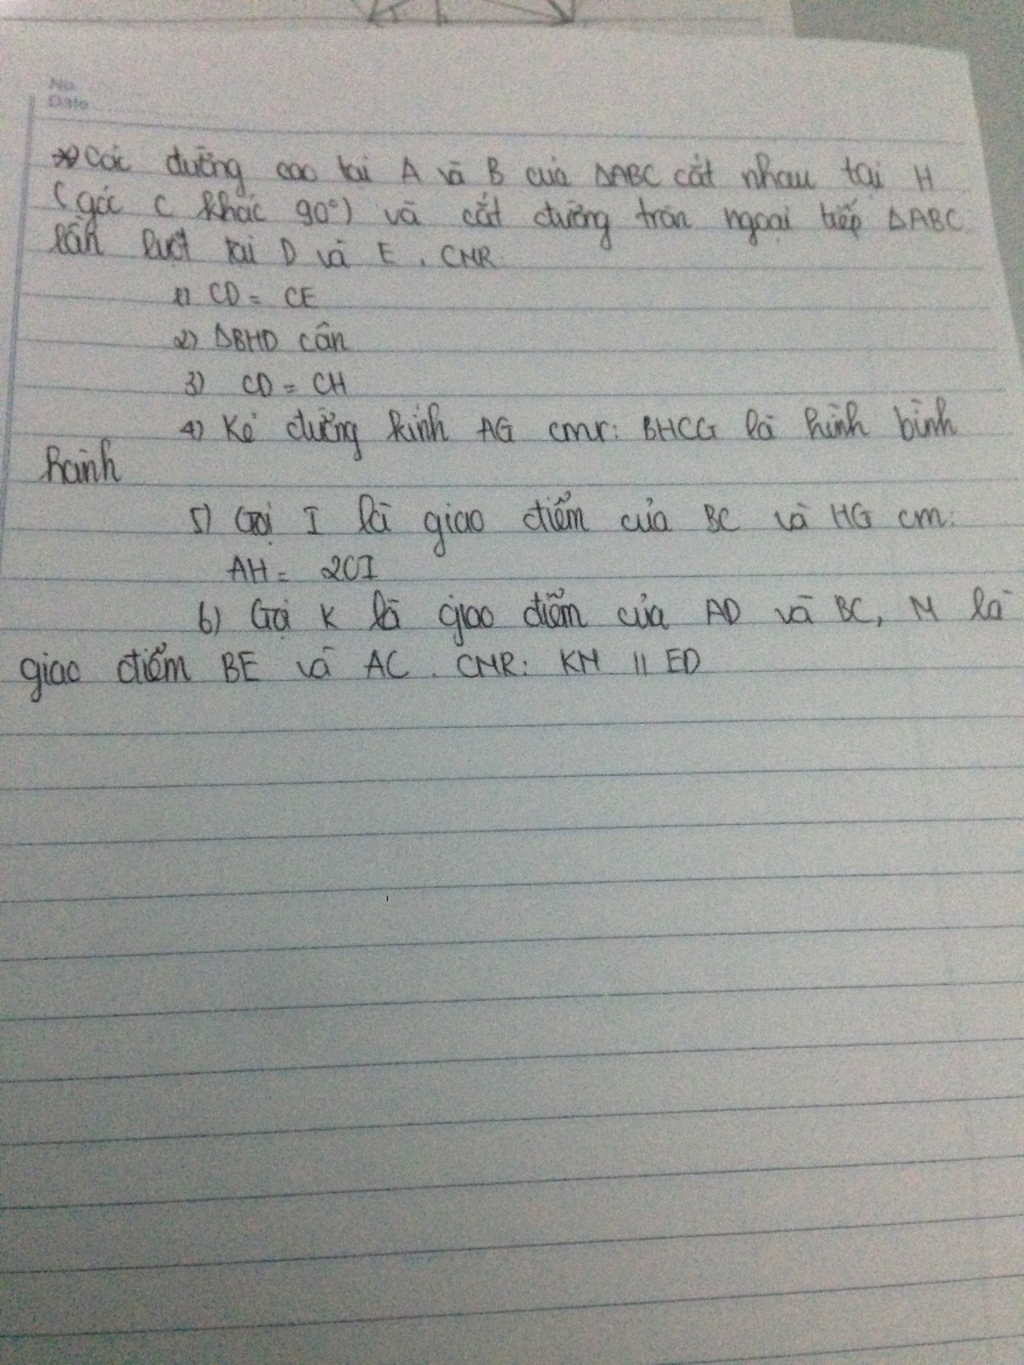 No.
Date
Các đường cao tại A và B của ΔABC cắt nhau tại H
(góc C khác 90°) và cắt đường tròn ngoại tiếp ΔABC
lần lượt tại D và E. CMR:
1) CD = CE
2) ΔBHD cân
3) CD = CH
4) Kẻ đường kính AG cmr: BHCG là hình bình
hành
5) Gọi I là giao điểm của BC và HG cm:
AH = 2OI
6) Gọi K là giao điểm của AD và BC, M là
giao điểm BE và AC. CMR: KM || ED